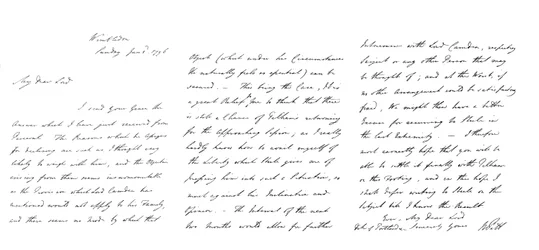 Wimbledon
Sunday June 1796
My Dear Lord
I send your Grace the
Answer which I have just received from
Perceval. The Reasons which he assigns
for declining are such as I thought very
likely to weigh with him, and the
arising from them seems
as the Provision which Lord Camden has
mentioned would all apply to his Family,
and there seems no mode by which that
Object (which under his Circumstances
He naturally feels as essential) can be
secured. – This being the Case, It is
a great Relief to me to think that there
is still a Chance of Pelham's returning
for the approaching Session, as I really
hardly know how to avail myself of
the Liberty which Steele gives me of
pressing him into such a Situation, so
much against his Inclination and
Opinion. – The Interval of the next
two months would allow for further
Intercourse with Lord Camden, respecting
Serjeant or any other Person that may
be thought of; and at the Worst, if
no other arrangement could be satisfactorily
fixed, We might then have a better
Excuse for recurring to Steele in
the last Extremity. – I therefore
most earnestly hope that you will be
able to settle it finally with Pelham
on this Footing, and in this hope I
shall defer writing to Steele on the
Subject till I know the Result
Ever My Dear Lord
Sincerely Yours
W Pitt
Duke of Portland